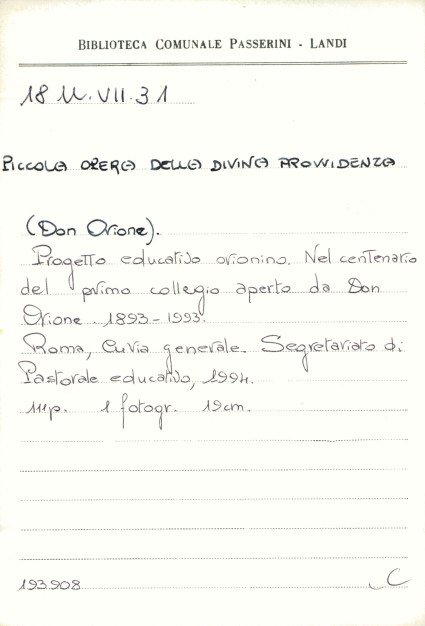 BIBLIOTECA COMUNALE PASSERINI - LANDI
18 U.VII.31
PICCOLA OPERA DELLA DIVINA PROVVIDENZA
(Don Orione).
Progetto educativo orionino. Nel centenario
del primo collegio aperto da Don
Orione. 1893-1993.
Roma, Curia generale. Segretariato di
Pastorale educativo, 1994.
111p. 1 fotogr. 19cm.
193908 C